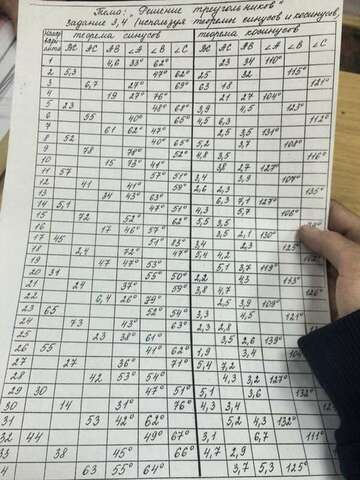 Тема: "Решение треугольников"
Задание 3,4 (используя теоремы синусов и косинусов,
Номер варианта теорема синусов теорема косинусов
BC AC AB ∠A ∠B ∠C BC AC AB ∠A ∠B ∠C
1 4,6 33° 62° 23 34 110°
2 5,3 47° 62° 25 32 115°
3 6,7 27° 69° 63 18 121°
4 19 27° 76° 21 27 104°
5 23 48° 68° 3,9 4,5 123°
6 35 40° 65° 4,5 6,3 112°
7 61 62° 47° 2,5 3,5 131°
8 52 40° 65° 5,2 3,7 108°
9 78 70° 52° 4,8 3,5 116°
10 15 73° 41° 38 27 127°
11 57 57° 51° 3,4 3,9 107°
12 41 41° 59° 2,6 2,3 135°
13 34 43° 63° 6,3 7,1 127°
14 5,1 47° 51° 4,3 5,7 106°
15 72 52° 62° 5,5 3,5
16 17 46° 57° 3,5 2,1 130°
17 45 51° 83° 3,4 2,3
18 2,4 72° 47° 5,4 4,2
19 47 47° 53° 5,1 3,7 119°
20 31 55° 50° 2,2 43 113°
21 24 37° 59° 3,8 4,7 126°
22 6,4 26° 79° 2,5 3,9 109°
23 65 52° 54° 3,3 4,5 121°
24 73 43° 63° 2,3 2,8
25 23 38° 61° 3,5 2,6 139°
26 55 41° 62° 1,9 3,4
27 27 36° 71° 5,4 7,2
28 42 53° 54° 4,3 3,2 127°
29 30 47° 51° 5,1 3,6 132°
30 14 31° 76° 4,3 3,4
31 53 42° 62° 5,2 4,3 132°
32 44 49° 67° 3,1 6,7 111°
33 38 45° 66° 4,7 2,9
4 63 55° 64° 3,7 5,3 125°